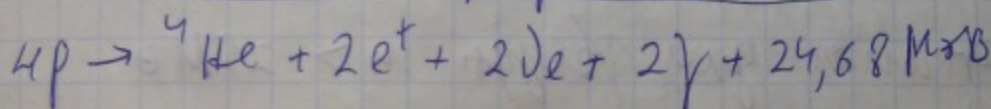 4p → ⁴He + 2e⁺ + 2νe + 2γ + 24,68 МэВ